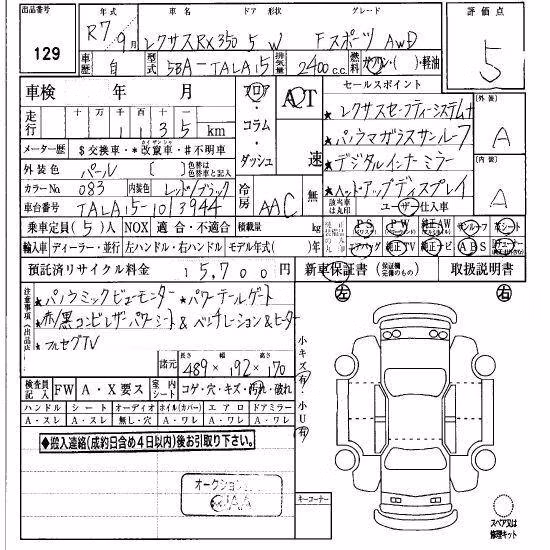 出品番号
129
年式 車名 ドア 形状 グレード 評価点
R7 9月 レクサスRX350 5 W Fスポーツ AWD 5
車歴 自 型式 5BA-TALA15 排気量 2400cc 燃料 ガソリン・軽油
車検 年 月 フロア・コラム・ダッシュ AT 速 セールスポイント
走行 十 万 千 百 十 一
1 1 3 5 km
★レクサスセーフティーシステム+
外装 A
メーター歴 $交換車・*改竄車・#不明車
カイザンシャ
★パノラマガラスサンルーフ
外装色 パール 〔 〕 色替は色替車と記入
★デジタルインナーミラー
内装 A
カラーNo 083 内装色 レッド/ブラック 冷房 AAC 無
★ヘッドアップディスプレイ
車台番号 TALA15-1013944
該当車は丸印 ユーザー仕入車
乗車定員(5)人 NOX 適合・不適合 積載量 kg
PS PW 純正AW サンルーフ 革シート
輸入車 ディーラー・並行 左ハンドル・右ハンドル モデル年式( )年
エアバッグ 純正TV 純正ナビ ABS
預託済リサイクル料金 15,700円 新車保証書(保証欄完備のもの) 取扱説明書
注意事項(出品店)
左 右
★パノラミックビューモニター ★パワーテールゲート
★赤/黒コンビレザーパワーシート&ベンチレーション&ヒーター
★フルセグTV
諸元 長さ 489×幅 192×高さ 170
小キズ有・小U有
検査員記入 FW A・X要ス 室内シート コゲ・穴・キズ・汚れ・破れ
ハンドル シート オーディオ ホイル(カバー) エアロ ドアミラー
A・スレ A・スレ 無し・穴 A・ワレ A・ワレ A・ワレ
◆搬入連絡(成約日含め4日以内)後お引取り下さい。
オークション
JAA
キーコーナー
スペア又は
修理キット